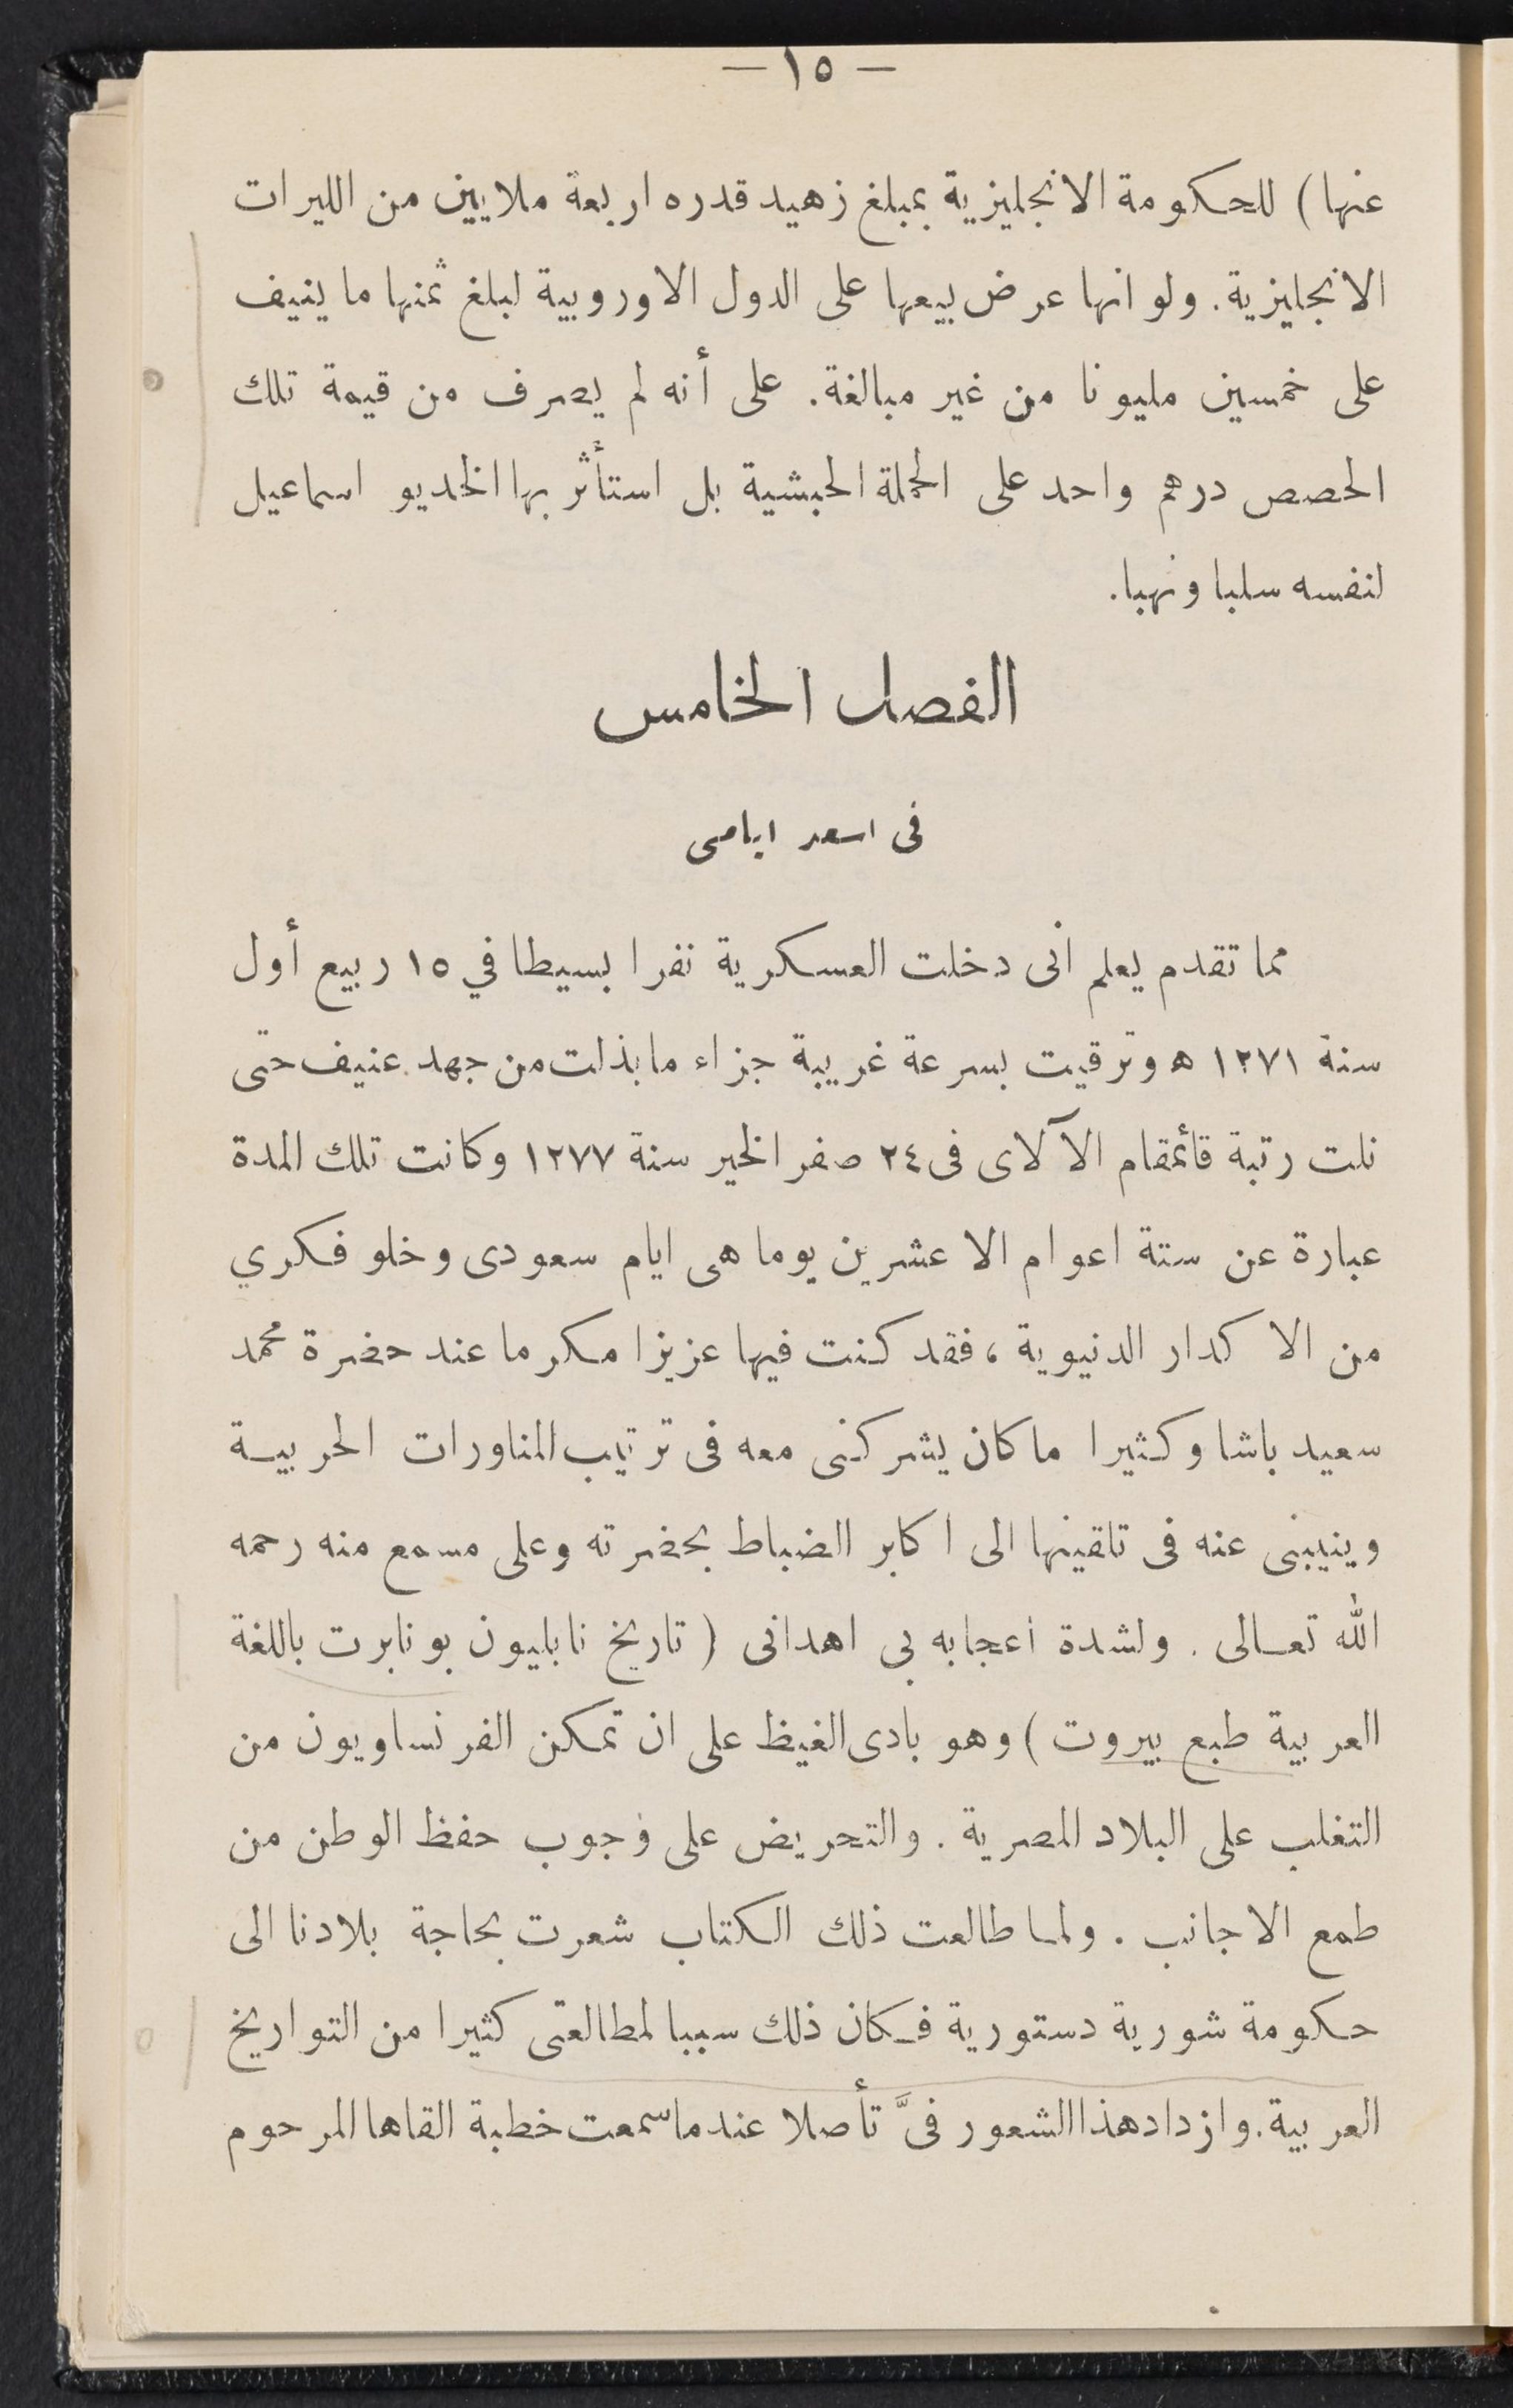 — ١٥ —
عنها) للحكومة الانجليزية بمبلغ زهيد قدره اربعة ملايين من الليرات
الانجليزية. ولو انها عرض بيعها على الدول الاوروبية لبلغ ثمنها ما ينيف
على خمسين مليونا من غير مبالغة. على أنه لم يصرف من قيمة تلك
الحصص درهم واحد على الحملة الحبشية بل استأثر بها الخديو اسماعيل
لنفسه سلبا ونهبا.
الفصل الخامس
فى اسعد ايامى
مما تقدم يعلم انى دخلت العسكرية نفرا بسيطا في ١٥ ربيع أول
سنة ١٢٧١ ه وترقيت بسرعة غريبة جزاء ما بذلت من جهد عنيف حتى
نلت رتبة قائمقام الآلاى فى ٢٤ صفر الخير سنة ١٢٧٧ وكانت تلك المدة
عبارة عن ستة اعوام الا عشرين يوما هى ايام سعودى وخلو فكري
من الاكدار الدنيوية، فقد كنت فيها عزيزا مكرما عند حضرة محمد
سعيد باشا وكثيرا ما كان يشركنى معه فى ترتيب المناورات الحربية
وينيبنى عنه فى تلقينها الى اكابر الضباط بحضرته وعلى مسمع منه رحمه
الله تعالى. ولشدة اعجابه بى اهدانى (تاريخ نابليون بونابرت باللغة
العربية طبع بيروت) وهو بادى الغيظ على ان تمكن الفرنساويون من
التغلب على البلاد المصرية. والتحريض على وجوب حفظ الوطن من
طمع الاجانب. ولما طالعت ذلك الكتاب شعرت بحاجة بلادنا الى
حكومة شورية دستورية فكان ذلك سببا لمطالعتى كثيرا من التواريخ
العربية. وازداد هذا الشعور فىَّ تأصلا عند ما سمعت خطبة القاها المرحوم